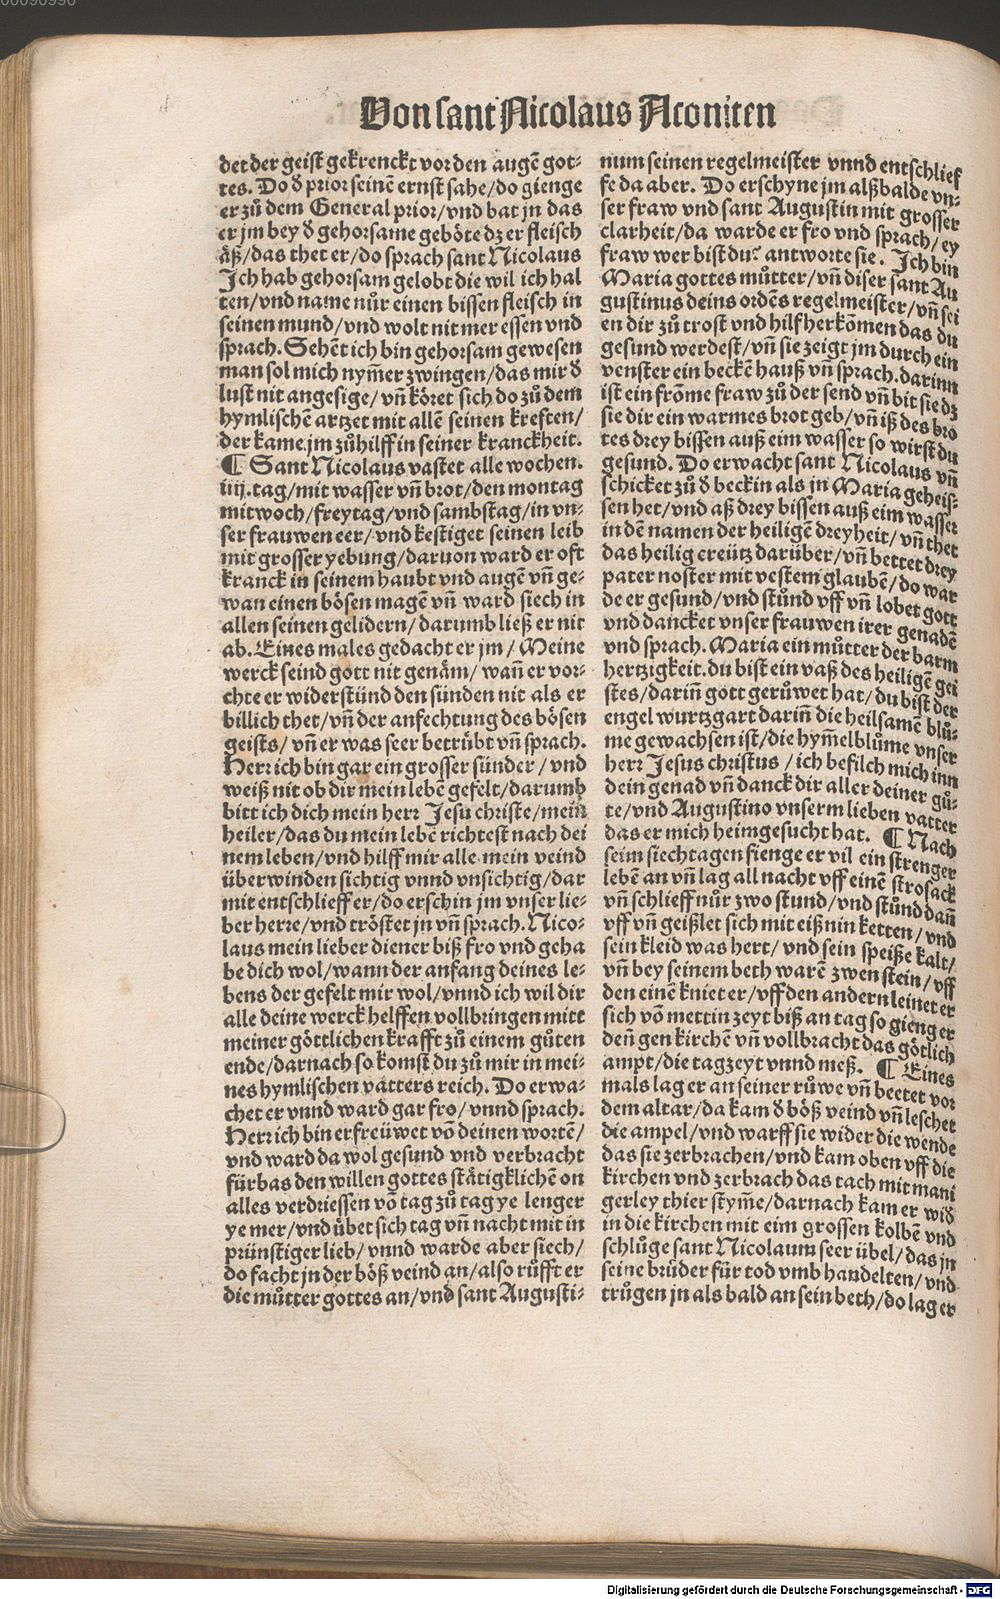 00090996
Von sant Nicolaus Aconiten
det der geist gekrenckt vor den augē got⸗
tes. Do ð prior seinē ernst sahe/do gienge
er zů dem General prior/vnd bat jn das
er jm bey ð gehorsame geböte dz er fleisch
äß/das thet er/do sprach sant Nicolaus
Ich hab gehorsam gelobt die wil ich hal
ten/vnd name nůr einen bissen fleisch in
seinen mund/vnd wolt nit mer essen vnd
sprach. Sehēt ich bin gehorsam gewesen
man sol mich nym̄er zwingen/das mir ð
lust nit angesige/vn̄ köret sich do zů dem
hymlischē artzet mit allē seinen kreften/
der kame jm zůhilff in seiner kranckheit.
¶ Sant Nicolaus vastet alle wochen.
iiij. tag/mit wasser vn̄ brot/den montag
mitwoch/freytag/vnd sambstag/in vn⸗
ser frauwen eer/vnd kestiget seinen leib
mit grosser yebung/daruon ward er oft
kranck in seinem haubt vnd augē vn̄ ge⸗
wan einen bösen magē vn̄ ward siech in
allen seinen gelidern/darumb ließ er nit
ab. Eines males gedacht er jm/Meine
werck seind gott nit genäm/wan̄ er vor⸗
chte er widerstünd den sünden nit als er
billich thet/vn̄ der anfechtung des bösen
geists/vn̄ er was seer betrübt vn̄ sprach.
Herr ich bin gar ein grosser sünder/vnd
weiß nit ob dir mein leben gefelt/darumb
bitt ich dich mein herr Jesu christe/mein
heiler/das du mein lebē richtest nach dei
nem leben/vnd hilff mir alle mein veind
überwinden sichtig vnnd vnsichtig/dar
mit entschlieff er/do erschin jm vnser lie⸗
ber herre/vnd tröstet jn vn̄ sprach. Nico⸗
laus mein lieber diener biß fro vnd geha
be dich wol/wann der anfang deines le⸗
bens der gefelt mir wol/vnnd ich wil dir
alle deine werck helffen vollbringen mitt
meiner göttlichen krafft zů einem gůten
ende/darnach so komst du zů mir in mei⸗
nes hymlischen vatters reich. Do erwa⸗
chet er vnnd ward gar fro/vnnd sprach.
Herr ich bin erfreüwet vō deinen wortē/
vnd ward da wol gesund vnd verbracht
fürbas den willen gottes stätigklichē on
alles verdriessen vō tag zů tag ye lenger
ye mer/vnd übet sich tag vn̄ nacht mit in
prünstiger lieb/vnnd warde aber siech/
do facht jn der böß veind an/also růfft er
die můtter gottes an/vnd sant Augusti⸗
num seinen regelmeister vnnd entschlief
fe da aber. Do erschyne jm alßbalde vn⸗
ser fraw vnd sant Augustin mit grosser
clarheit/da warde er fro vnd sprach/ey
fraw wer bist du? antworte sie. Ich bin
Maria gottes můtter/vn̄ diser sant Au
gustinus deins ordēs regelmeister/vn̄ sei
en dir zů trost vnd hilf herkōmen das du
gesund werdest/vn̄ sie zeigt jm durch ein
venster ein beckē hauß vn̄ sprach. darinn
ist ein frōme fraw zů der send vn̄ bit sie dz
sie dir ein warmes brot geb/vn̄ iß des bro
tes drey bissen auß eim wasser so wirst du
gesund. Do erwacht sant Nicolaus vn̄
schicket zů ð beckin als jn Maria geheis⸗
sen het/vnd aß drey bissen auß eim wasser
in dē namen der heiligē dreyheit/vn̄ thet
das heilig creütz darüber/vn̄ bettet drey
pater noster mit vestem glaubē/do war
de er gesund/vnd stůnd vff vn̄ lobet gott
vnd dancket vnser frauwen irer genadē
vnd sprach. Maria ein můtter der barm
hertzigkeit. du bist ein vaß des heiligē gei
stes/darin̄ gott gerůwet hat/du bist der
engel wurtzgart darin̄ die heilsamē blů⸗
me gewachsen ist/die hym̄elblůme vnser
herr Jesus christus/ich befilch mich inn
dein genad vn̄ danck dir aller deiner gů⸗
te/vnd Augustino vnserm lieben vatter
das er mich heimgesucht hat. ¶ Nach
seim siechtagen fienge er vil ein strenger
lebē an vn̄ lag all nacht vff einē strosack
vn̄ schlieff nůr zwo stund/vnd stůnd dan̄
vff vn̄ geißlet sich mit eißnin ketten/vnd
sein kleid was hert/vnd sein speiße kalt/
vn̄ bey seinem beth warē zwen stein/vff
den einē kniet er/vff den andern leinet er
sich vō mettin zeyt biß an tag so gieng er
den̄ gen kirchē vn̄ vollbracht das götlich
ampt/die tagzeyt vnnd meß. ¶ Eines
mals lag er an seiner růwe vn̄ beetet vor
dem altar/da kam ð böß veind vn̄ leschet
die ampel/vnd warff sie wider die wende
das sie zerbrachen/vnd kam oben vff die
kirchen vnd zerbrach das tach mit mani
gerley thier stym̄e/darnach kam er wið
in die kirchen mit eim grossen kolbē vnd
schlůge sant Nicolaum seer übel/das jn
seine brüder für tod vmb handelten/vnd
trůgen jn als bald an sein beth/do lag er
Digitalisierung gefördert durch die Deutsche Forschungsgemeinschaft - DFG